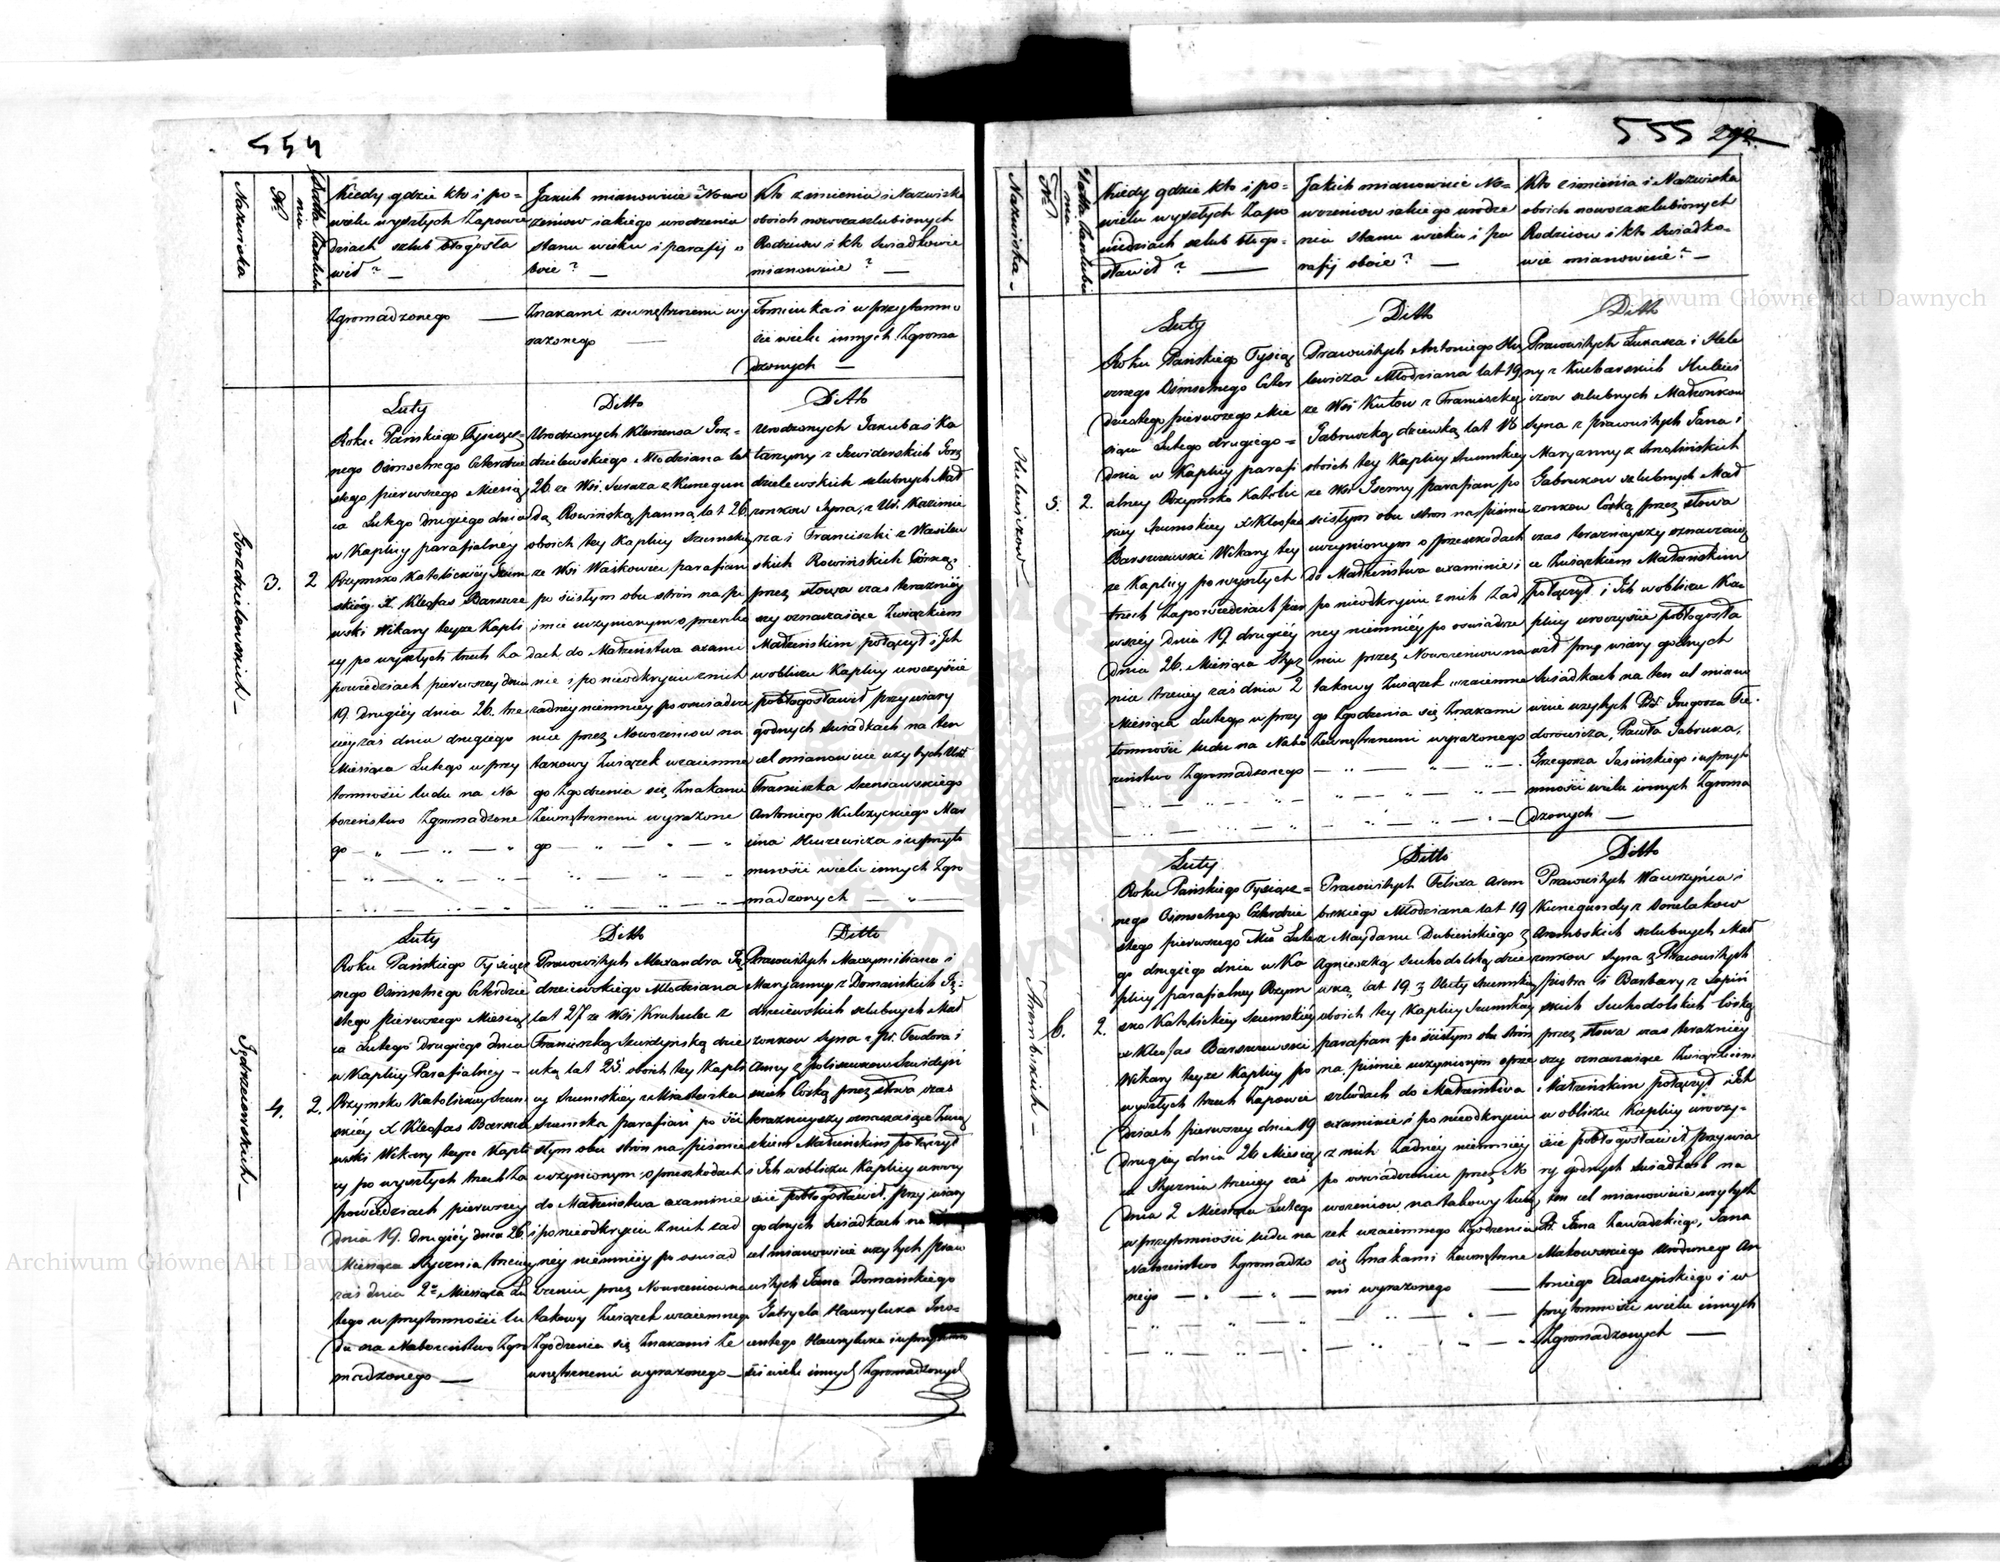 554
Nazwiska
No
Datta Zaszlubienia
Kiedy gdzie kto i po=
wielu wyszłych Zapowie
dziach szlub błogosła
wił? —
Jakich mianowicie Nowo
żeniow iakiego urodzenia
stanu wieku i parafij o
boie? —
Kto z imienia i Nazwiska
oboich nowozaszlubionych
Rodzicow i kto Swiadkowie
mianowicie? —
Zgromadzonego —
Znakami zewnętrznemi wy
rażonego —
Tomicka i w przytomno
ści wielu innych Zgroma
dzonych —
Gorzdzielewskich —
3.
2
Luty
Roku Pańskiego Tysiącz=
nego Osmsetnego Czterdzie
stego pierwszego Miesią
ca Lutego drugiego dnia
w Kaplicy parafialney
Rzymsko Katolickiey Szum
skiey X Kleofas Barszcze
wski Wikary teyże Kapli
cy po wyszłych trzech Za
powiedziach pierwszey dnia
19. drugiey dnia 26. trze
ciey zaś dnia drugiego
Miesiąca Lutego w przy
tomności ludu na Na
bożeństwo Zgromadzone
go — " — " — "
Ditto
Urodzonych Klemensa Gorz=
dzielewskiego Młodziana lat
26 ze Wsi Suraża z Kunegun
dą Rowińską panną lat 26
oboich tey Kaplicy Szumskiey
ze Wsi Waśkowiec parafian
po ścisłym obu stron na pi
śmie uczynionym o przeszko
dach do Małżeństwa exami
nie i po nieodkryciu z nich
żadney niemniey po oswiadcze
nie przez Nowożeniow na
takowy Związek wzaiemne
go zgodzenia się Znakami
Zewnętrznemi wyrażone
go — " — " — "
Ditto
Urodzonych Jakuba i Ka
tarzyny z Swiderskich Gorz
dzielewskich szlubnych Mał
żonkow Syna, z Ur. Kazimie
rza i Franciszki z Wasilew
skich Rowińskich Córką
przez słowa czas terazniey
szy oznaczaiące Związkiem
Małżeńskim połączył i Ich
w obliczu Kaplicy uroczyście
pobłogosławił przy wiary
godnych Swiadkach na ten
cel mianowicie użytych Ur.
Franciszka Szeniawskiego
Antoniego Kulczyckiego Mar
cina Hurewicza i w przyto
mności wielu innych Zgro
madzonych — " —
Jędrzeiewskich —
4.
2.
Luty
Roku Pańskiego Tysiącz
nego Osmsetnego Czterdzie
stego pierwszego Miesią
ca Lutego Drugiego dnia
w Kaplicy Parafialney —
Rzymsko Katolickiey Szum
skiey X Kleofas Barszcze
wski Wikary teyże Kapli
cy po wyszłych trzech Za
powiedziach pierwszey
dnia 19. Drugiey dnia 26
Miesiąca Stycznia trzeciey
zaś dnia 2o Miesiąca Lu
tego w przytomności lu
du na Nabożeństwo Zgro
madzonego —
Ditto
Pracowitych Alexandra Ję
drzeiewskiego Młodziana
lat 27 ze Wsi Kruhulec z
Franciszką Szwidzyńską dzie
wką lat 25. oboich tey Kapli
cy Szumskiey z Miasteczka
Szumska parafian po ści
słym obu stron na piśmie
uczynionym o przeszkodach
do Małżeństwa examinie
i po nieodkryciu z nich żad
ney niemniey po oswiad
czeniu przez Nowożeniow na
takowy Związek wzaiemnego
Zgodzenia się Znakami Ze
wnętrznemi wyrażonego —
Ditto
Pracowitych Maxymiliana i
Maryanny z Domańskich Ję=
drzeiewskich szlubnych Mał
żonkow Syna z Pr. Teodora i
Anny z Poliszczukow Szwidzyń
skich Corką przez słowa czas
teraznieyszy oznaczaiące Zwią
zkiem Małżeńskim połączył
i Ich w obliczu Kaplicy uroczy
ście pobłogosławił, przy wiary
godnych Swiadkach na
cel mianowicie użytych praco
witych Jana Domańskiego
Gabryela Hawryluka Inno=
centego Hawryluka i w przytomno
ści wielu innych Zgromadzonych
555 292
Nazwiska —
No
Datta Zaszlubienia
Kiedy gdzie kto i po=
wielu wyszłych Zapo
wiedziach szlub błogo=
sławił? —
Jakich mianowicie No=
wożeniow iakiego urodze
nia stanu wieku i pa
rafij oboie? —
Kto z imienia i Nazwiska
oboich nowozaszlubionych
Rodzicow i kto Swiadko=
wie mianowicie? —
Hulewiczow —
5.
2.
Luty
Roku Pańskiego Tysią
cznego Osmsetnego Czter
dziestego pierwszego Mie
siąca Lutego drugiego =
dnia w Kaplicy parafi
alney Rzymsko Katolic
kiey Szumskiey X Kleofas
Barszczewski Wikary tey
że Kaplicy po wyszłych
trzech Zapowiedziach pier
wszey dnia 19. drugiey
dnia 26. Miesiąca Stycz
nia trzeciey zaś dnia 2
Miesiąca Lutego w przy
tomności ludu na Nabo
żeństwo Zgromadzonego
Ditto
Pracowitych Antoniego Hu
lewicza Młodziana lat 19
ze Wsi Kutow z Franciszką
Gabruczką dziewką lat 18
oboich tey Kaplicy Szumskiey
ze Wsi parafian po
ścisłym obu stron na piśmie
uczynionym o przeszkodach
do Małżeństwa examinie i
po nieodkryciu z nich żad
ney niemniey po oswiadcze
niu przez Nowożeniow na
takowy Związek wzaiemne
go Zgodzenia się Znakami
Zewnętrznemi wyrażonego
Ditto
Pracowitych Łukasza i Hele
ny z Kucharskich Hulewi
czow szlubnych Małżonkow
Syna z pracowitych Jana i
Maryanny z Smolińskich
Gabrukow szlubnych Mał
żonkow Corką przez słowa
czas teraznieyszy oznaczaią
ce Związkiem Małżeńskim
połączył i Ich w obliczu Ka
plicy uroczyście pobłogosła
wił przy wiary godnych
Swiadkach na ten cel miano
wicie użytych Pr. Grzegorza Fe
dorowicza, Pawła Gabruka,
Grzegorza Jasińskiego i w przyto
mności wielu innych Zgroma
dzonych —
Arembskich —
6.
2.
Luty
Roku Pańskiego Tysiącz=
nego Osmsetnego Czterdzie
stego pierwszego Mie Lute
go drugiego dnia w Ka
plicy parafialney Rzym
sko Katolickiey Szumskiey
X Kleofas Barszczewski
Wikary teyże Kaplicy po
wyszłych trzech Zapowie
dziach pierwszey dnia 19
drugiey dnia 26 Miesią
ca Stycznia trzeciey zaś
dnia 2 Miesiąca Lutego
w przytomności ludu na
Nabożeństwo Zgromadzo
nego — " — " —
Ditto
Pracowitych Felixa Arem
bskiego Młodziana lat 19
z Maydanu Dubieńskiego z
Agnieszką Suchodolską dzie
wką lat 19 z Huty Szumskiey
oboich tey Kaplicy Szumskiey
parafian po ścisłym obu stron
na piśmie uczynionym o prze
szkodach do Małżeństwa
examinie i po nieodkryciu
z nich żadney niemniey
po oswiadczeniu przez No
wożeniow na takowy Zwią
zek wzaiemnego Zgodzenia
się Znakami Zewnętrzne
mi wyrażonego —
Ditto
Pracowitych Wawrzyńca i
Kunegundy z Donelakow
Arembskich szlubnych Mał
żonkow Syna z Pracowitych
Piotra i Barbary z Łopiń
skich Suchodolskich Corką
przez słowa czas terazniey
szy oznaczaiące Związkiem
Małżeńskim połączył i Ich
w obliczu Kaplicy uroczy=
ście pobłogosławił przy wia
ry godnych Swiadkach na
ten cel mianowicie użytych
Pr. Jana Zawadzkiego, Jana
Makowskiego Urodzonego An
toniego Adaszyńskiego i w
przytomności wielu innych
Zgromadzonych —
Archiwum Główne Akt Dawnych
Archiwum Główne Akt Dawnych